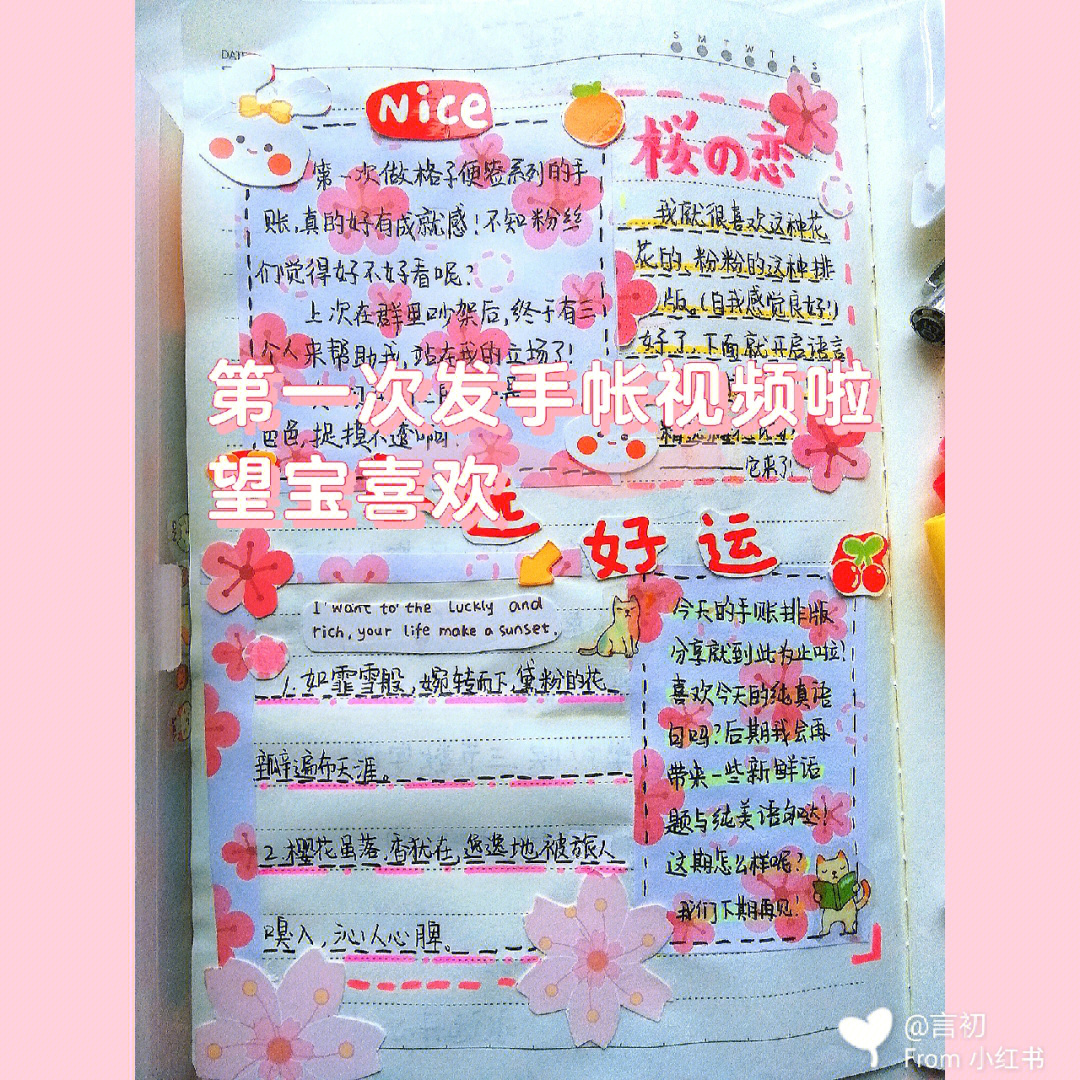 DATE
S M T W T F S
Nice
第一次做格子便签系列的手
账,真的好有成就感!不知粉丝
们觉得好不好看呢?
上次在群里吵架后,终于有三
个人来帮助我,站在我的立场了!
巴色,捉摸不透啊!
桜の恋
我就很喜欢这种花
花的,粉粉的这种排
版。(自我感觉良好!)
好了,下面就开启语言
它来了!
第一次发手帐视频啦
望宝喜欢
好运
I want to the luckly and
rich, your life make a sunset.
1. 如霏雪般,婉转而下,黛粉的花
瓣遍布天涯。
2.樱花虽落,香犹在,悠逸地被旅人
嗅入,沁人心脾。
今天的手账排版
分享就到此为止啦!
喜欢今天的纯真语
句吗?后期我会再
带来一些新鲜话
题与纯美语句哒!
这期怎么样呢?
我们下期再见!
@言初
From 小红书